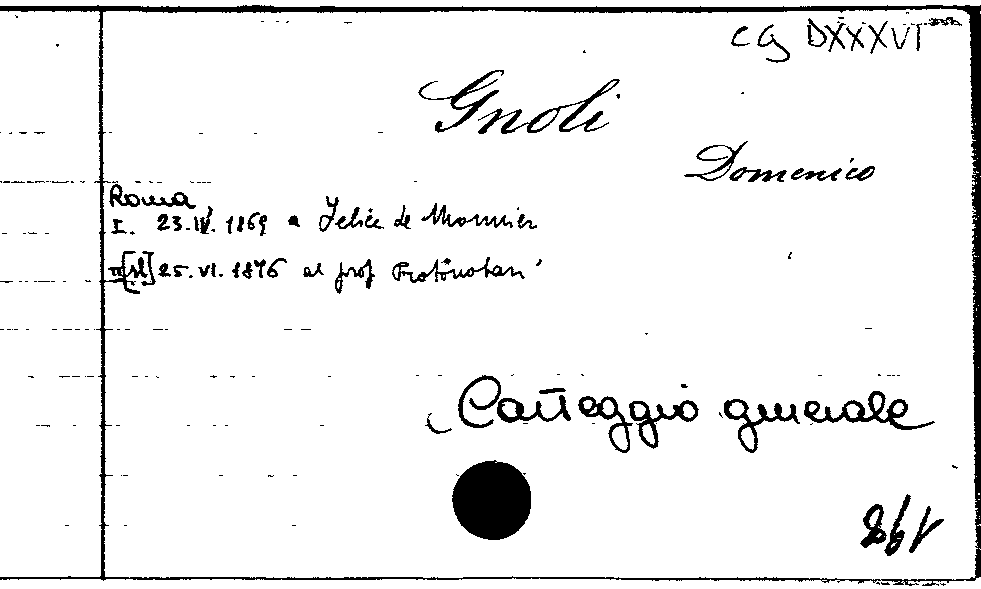 CG DXXXVI
Gnoli
Domenico
Roma,
I. 23.IV.1869 a Felice Le Monnier
II [sl] 25.VI.1876 al prof Protonotari
Carteggio generale